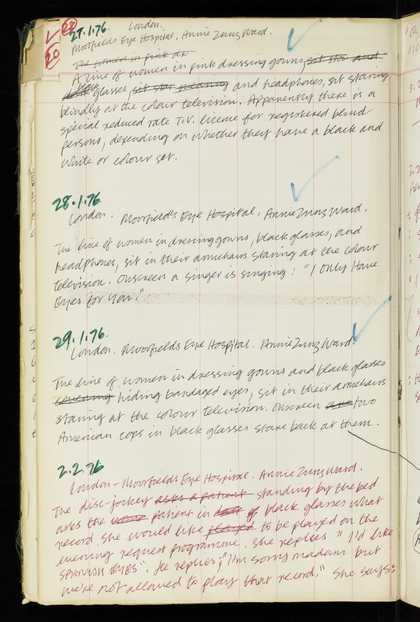 27.1.76 London.
Moorfields Eye Hospital, Annie Zunz Ward.
A line of women in pink dressing gowns, sit star and
glasses sit star meaning and headphones, sit staring
blindly at the colour television. Apparently there is a
special reduced rate T.V. license for registered blind
persons, depending on whether they have a black and
white or colour set.
28.1.76
London. Moorfields Eye Hospital. Annie Zunz Ward.
The line of women in dressing gowns, black glasses, and
headphones, sit in their armchairs staring at the colour
television. Onscreen a singer is singing: "I Only Have
Eyes for You."
29.1.76
London. Moorfields Eye Hospital. Annie Zunz Ward
The line of women in dressing gowns and black glasses
hiding bandaged eyes, sit in their armchairs
staring at the colour television. Onscreen two
American cops in black glasses stare back at them.
2.2.76
London - Moorfields Eye Hospital. Annie Zunz Ward.
The disc-jockey asks a patient standing by the bed
asks the patient in black glasses what
record she would like played to be played on the
evening request programme. She replies "I'd like
SPANISH EYES". He replies, "I'm sorry madam but
we're not allowed to play that record." She says: